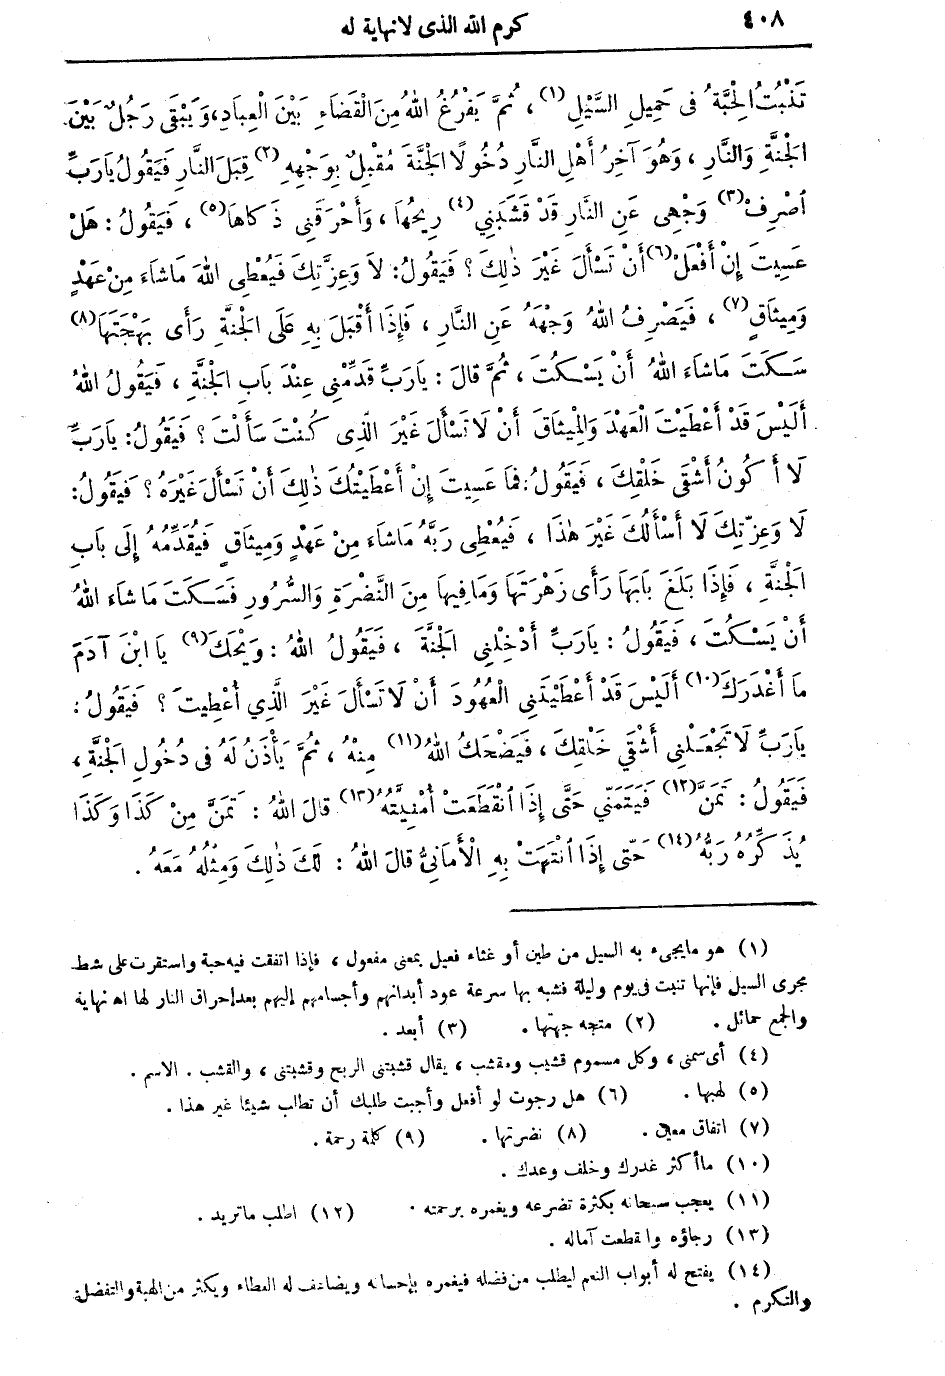 ٤٠٨
كرم الله الذى لانهاية له
تَنْبُتُ الْحِبَّةُ فى حَمِيلِ السَّيْلِ (١) ، ثُمَّ يَفْرُغُ اللهُ مِنَ الْقَضَاءِ بَيْنَ الْعِبَادِ، وَيَبْقَى رَجُلٌ بَيْنَ
الْجَنَّةِ وَالنَّارِ ، وَهُوَ آخِرُ أَهْلِ النَّارِ دُخُولًا الْجَنَّةَ مُقْبِلٌ بِوَجْهِهِ (٢) قِبَلَ النَّارِ فَيَقُولُ يَارَبِّ
اُصْرِفْ (٣) وَجْهِى عَنِ النَّارِ قَدْ قَشَبَنِي (٤) رِيحُهَا ، وَأَحْرَقَنِى ذَكَاهَا (٥) ، فَيَقُولُ : هَلْ
عَسِيتَ إِنْ أَفْعَلْ (٦) أَنْ تَسْأَلَ غَيْرَ ذٰلِكَ ؟ فَيَقُولُ: لاَ وَعِزَّتِكَ فَيُعْطِى اللهَ مَاشَاءَ مِنْ عَهْدٍ
وَمِيثَاقٍ (٧) ، فَيَصْرِفُ اللهُ وَجْهَهُ عَنِ النَّارِ ، فَإِذَا أَقْبَلَ بِهِ عَلَى الْجَنَّةِ رَأَى بَهْجَتَهَا (٨)
سَكَتَ مَاشَاءَ اللهُ أَنْ يَسْكُتَ ، ثُمَّ قَالَ : يَارَبِّ قَدِّمْنِى عِنْدَ بَابِ الْجَنَّةِ ، فَيَقُولُ اللهُ
أَلَيْسَ قَدْ أَعْطَيْتَ الْعَهْدَ وَالْمِيثَاقَ أَنْ لاَ تَسْأَلَ غَيْرَ الَّذِى كُنْتَ سَأَلْتَ ؟ فَيَقُولُ: يَارَبِّ
لاَ أَكُونُ أَشْقَى خَلْقِكَ ، فَيَقُولُ: فَمَا عَسِيتَ إِنْ أَعْطَيْتُكَ ذٰلِكَ أَنْ تَسْأَلَ غَيْرَهُ ؟ فَيَقُولُ:
لاَ وَعِزَّتِكَ لاَ أَسْأَلُكَ غَيْرَ هٰذَا ، فَيُعْطِى رَبَّهُ مَاشَاءَ مِنْ عَهْدٍ وَمِيثَاقٍ فَيُقَدِّمُهُ إِلَى بَابِ
الْجَنَّةِ ، فَإِذَا بَلَغَ بَابَهَا رَأَى زَهْرَتَهَا وَمَا فِيهَا مِنَ النَّضْرَةِ وَالسُّرُورِ فَسَكَتَ مَاشَاءَ اللهُ
أَنْ يَسْكُتَ ، فَيَقُولُ : يَارَبِّ أَدْخِلْنِى الْجَنَّةَ ، فَيَقُولُ اللهُ : وَيْحَكَ (٩) يَا ابْنَ آدَمَ
مَا أَغْدَرَكَ (١٠) أَلَيْسَ قَدْ أَعْطَيْتَنِى الْعُهُودَ أَنْ لاَ تَسْأَلَ غَيْرَ الَّذِي أُعْطِيتَ ؟ فَيَقُولُ :
يَارَبِّ لاَ تَجْعَلْنِى أَشْقَى خَلْقِكَ ، فَيَضْحَكُ اللهُ (١١) مِنْهُ ، ثُمَّ يَأْذَنُ لَهُ فى دُخُولِ الْجَنَّةِ ،
فَيَقُولُ : تَمَنَّ (١٢) فَيَتَمَنَّى حَتَّى إِذَا اُنْقَطَعَتْ أُمْنِيَّتُهُ (١٣) قَالَ اللهُ : تَمَنَّ مِنْ كَذَا وَكَذَا
يُذَكِّرُهُ رَبُّهُ (١٤) حَتَّى إِذَا اُنْتَهَتْ بِهِ الْأَمَانِىُّ قَالَ اللهُ : لَكَ ذٰلِكَ وَمِثْلُهُ مَعَهُ .
(١) هو مايجىء به السيل من طين أو غثاء فعيل بمعنى مفعول ، فإذا اتفقت فيه حبة واستقرت على شط
مجرى السيل فإنها تنبت فى يوم وليلة فشبه بها سرعة عود أبدانهم وأجسامهم إليهم بعد إحراق النار لها اه نهاية
والجمع حمائل . (٢) متجه جهتها . (٣) أبعد .
(٤) أى سمنى ، وكل مسموم قشيب ومقشب ، يقال قشبتنى الريح وقشبتنى ، والقشب . الاسم .
(٥) لهبها . (٦) هل رجوت لو أفعل وأجبت طلبك أن تطلب شيئا غير هذا .
(٧) اتفاق معى . (٨) نضرتها . (٩) كلمة رحمة .
(١٠) ماأكثر غدرك وخلف وعدك .
(١١) يعجب سبحانه بكثرة تضرعه ويغمره برحمته . (١٢) اطلب ماتريد .
(١٣) رجاؤه وانقطعت آماله .
(١٤) يفتح له أبواب النعم ليطلب من فضله فيغمره بإحسانه ويضاعف له العطاء ويكثر من الهبة والتفضل
والتكرم .